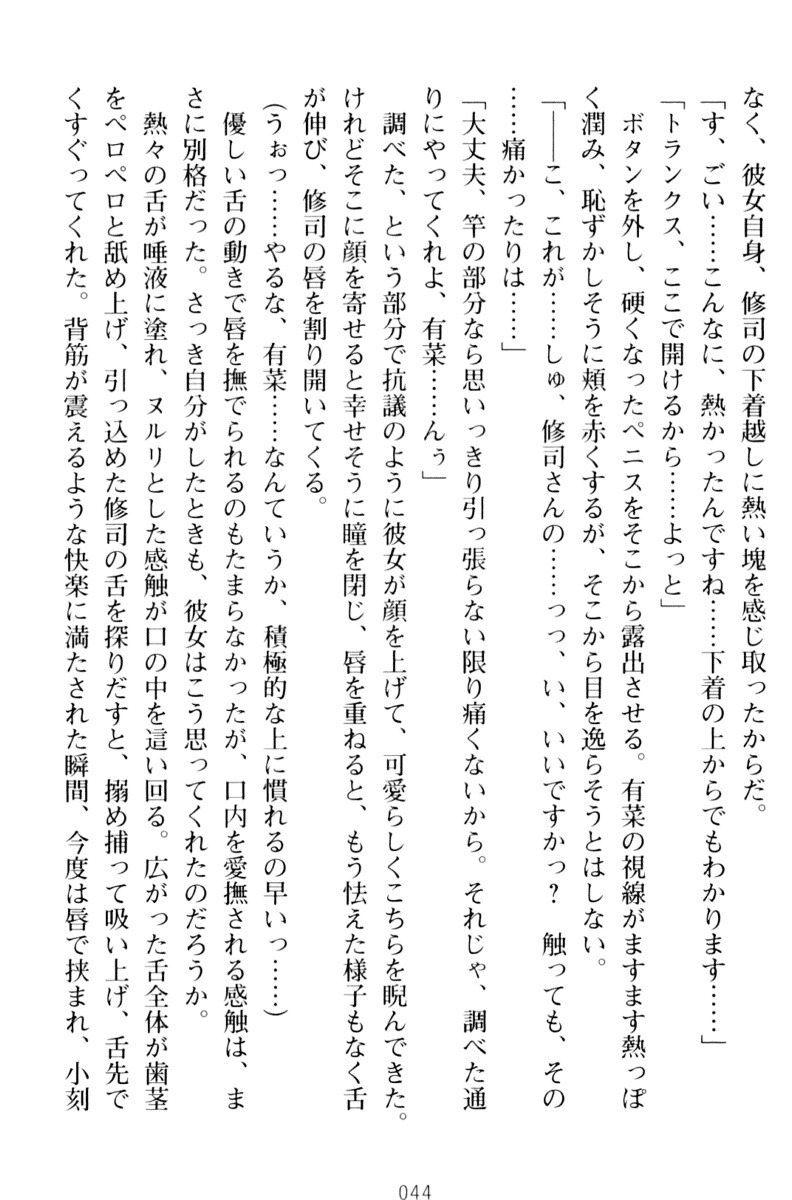 なく、彼女自身、修司の下着越しに熱い塊を感じ取ったからだ。
「す、ごい……こんなに、熱かったんですね……下着の上からでもわかります……」
「トランクス、ここで開けるから……よっと」
ボタンを外し、硬くなったペニスをそこから露出させる。有菜の視線がますます熱っぽ
く潤み、恥ずかしそうに頬を赤くするが、そこから目を逸らそうとはしない。
「――こ、これが……しゅ、修司さんの……っっ、い、いいですかっ？　触っても、その
……痛かったりは……」
「大丈夫、竿の部分なら思いっきり引っ張らない限り痛くないから。それじゃ、調べた通
りにやってくれよ、有菜……んぅ」
調べた、という部分で抗議のように彼女が顔を上げて、可愛らしくこちらを睨んできた。
けれどそこに顔を寄せると幸せそうに瞳を閉じ、唇を重ねると、もう怯えた様子もなく舌
が伸び、修司の唇を割り開いてくる。
（うぉっ……やるな、有菜……なんていうか、積極的な上に慣れるの早いっ……）
優しい舌の動きで唇を撫でられるのもたまらなかったが、口内を愛撫される感触は、ま
さに別格だった。さっき自分がしたときも、彼女はこう思ってくれたのだろうか。
熱々の舌が唾液に塗れ、ヌルリとした感触が口の中を這い回る。広がった舌全体が歯茎
をペロペロと舐め上げ、引っ込めた修司の舌を探りだすと、搦め捕って吸い上げ、舌先で
くすぐってくれた。背筋が震えるような快楽に満たされた瞬間、今度は唇で挟まれ、小刻
044